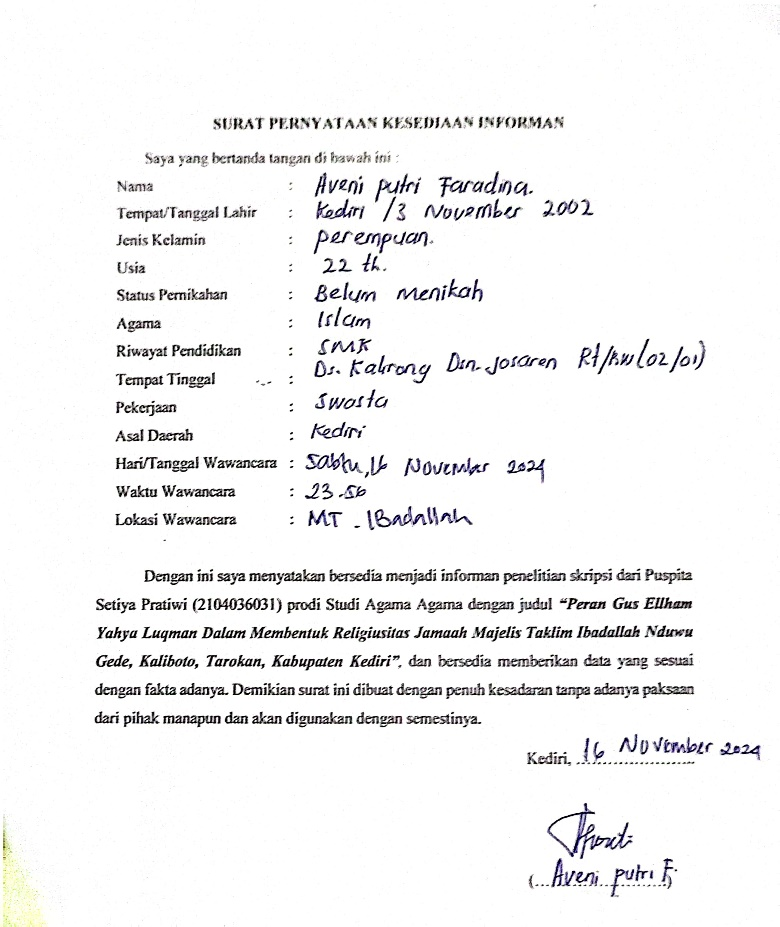 SURAT PERNYATAAN KESEDIAAN INFORMAN
Saya yang bertanda tangan di bawah ini :
Nama : Aveni putri Faradina.
Tempat/Tanggal Lahir : Kediri /3 November 2002
Jenis Kelamin : perempuan.
Usia : 22 th.
Status Pernikahan : Belum menikah
Agama : Islam
Riwayat Pendidikan : SMK
Tempat Tinggal : Ds. Kalirong Dsn. Josaren Rt/RW (02/01)
Pekerjaan : Swasta
Asal Daerah : Kediri
Hari/Tanggal Wawancara : Sabtu, 16 November 2024
Waktu Wawancara : 23.56
Lokasi Wawancara : MT. IBadallah
Dengan ini saya menyatakan bersedia menjadi informan penelitian skripsi dari Puspita
Setiya Pratiwi (2104036031) prodi Studi Agama Agama dengan judul “Peran Gus Ellham
Yahya Luqman Dalam Membentuk Religiusitas Jamaah Majelis Taklim Ibadallah Nduwu
Gede, Kaliboto, Tarokan, Kabupaten Kediri”, dan bersedia memberikan data yang sesuai
dengan fakta adanya. Demikian surat ini dibuat dengan penuh kesadaran tanpa adanya paksaan
dari pihak manapun dan akan digunakan dengan semestinya.
Kediri, 16 November 2024
(Aveni putri F.)